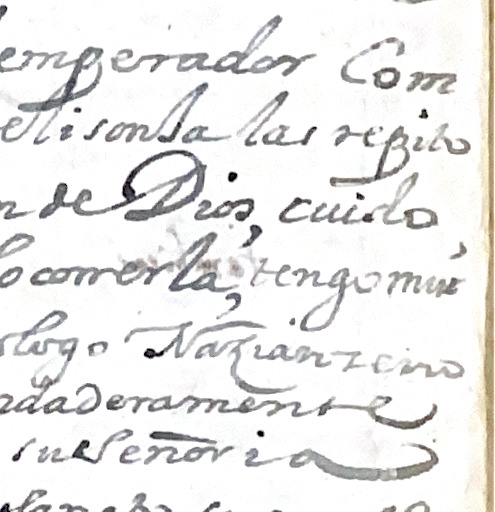 emperador Com
elisonsa las repito
n de Dios, cuido,
ocorrerla, tengo mui
ologo Nazianzeno
rdaderamente
su Señoria